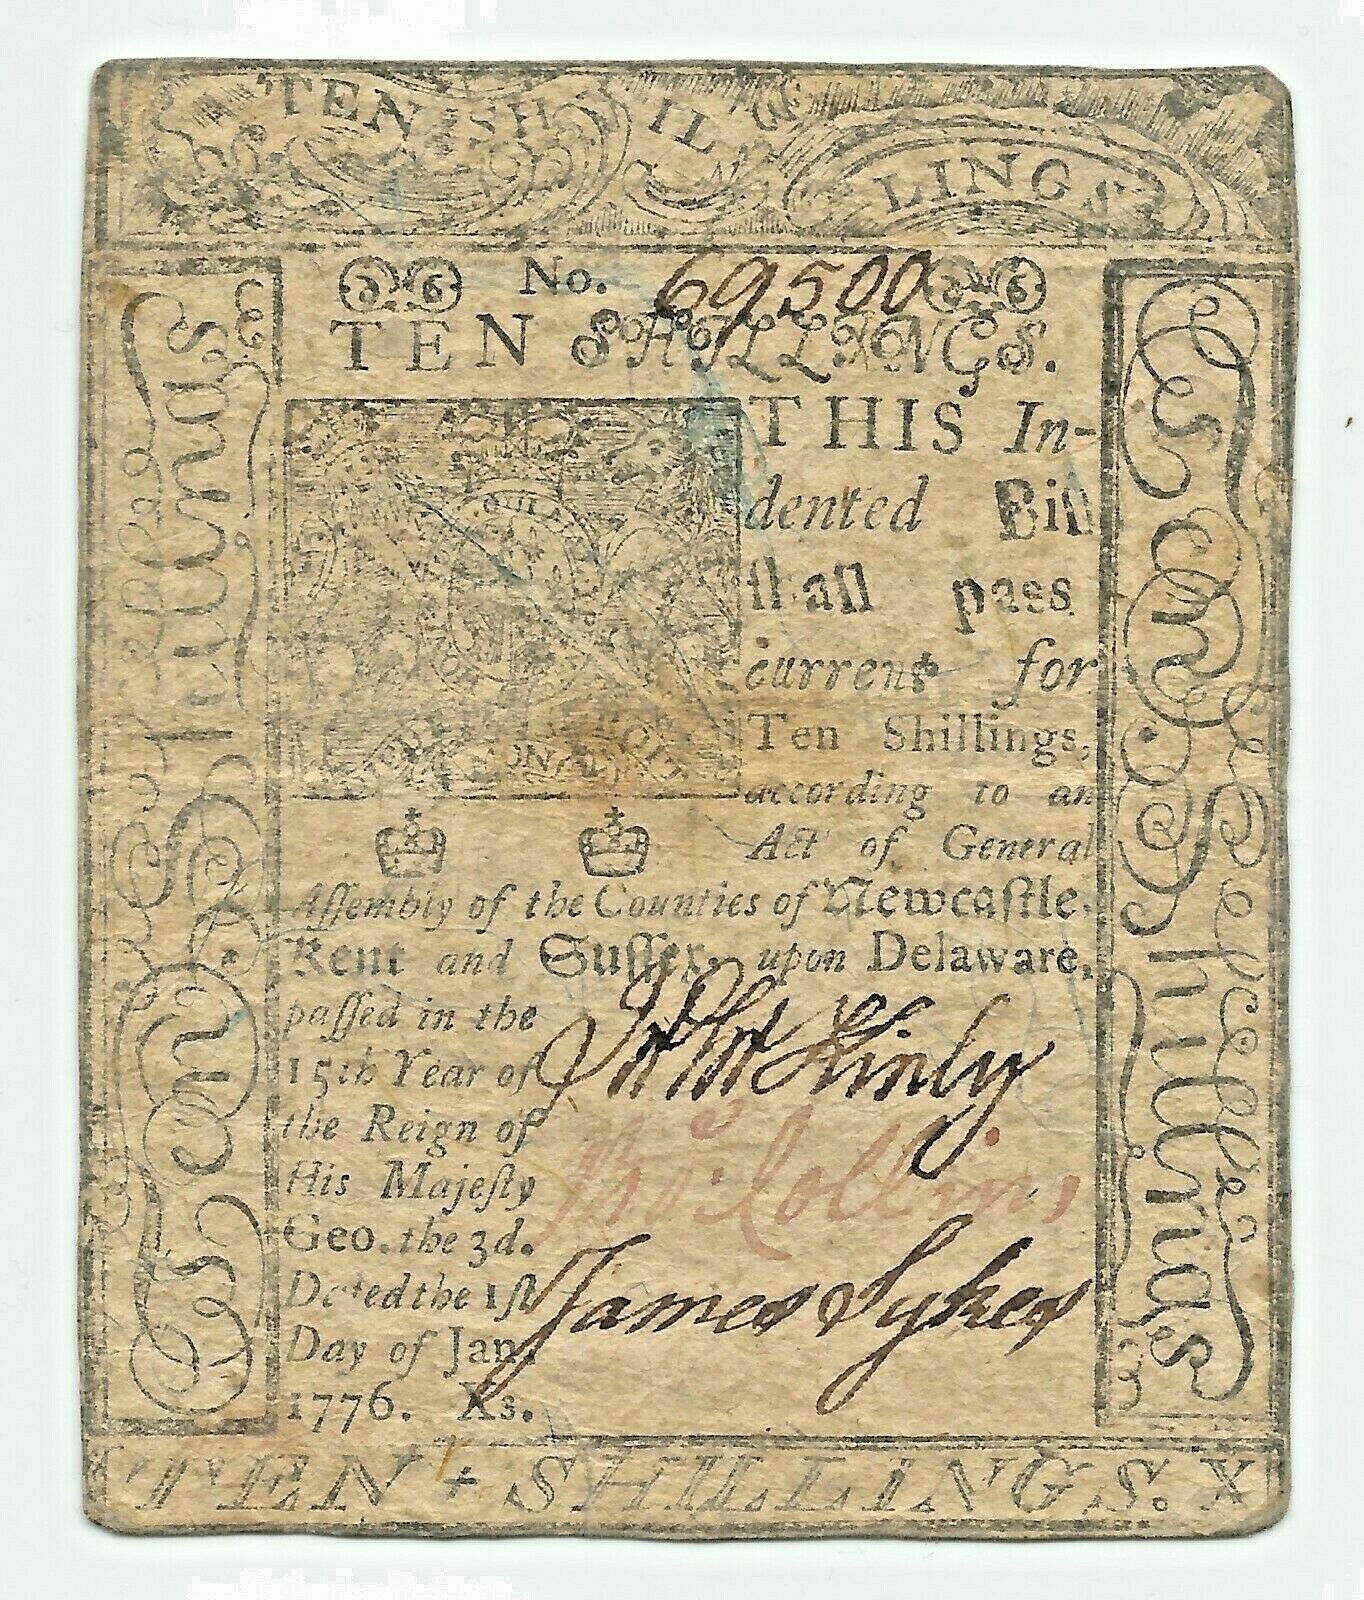 TEN SHILLINGS
No. 69500
TEN SHILLINGS.
THIS In-
dented Bill
ſhall pass
current for
Ten Shillings,
according to an
Act of General
Aſſembly of the Counties of Newcaſtle,
Kent and Suſſex, upon Delaware,
paſſed in the
15th Year of
the Reign of
His Majeſty
Geo. the 3d.
Dated the 1ſt
Day of Jan.
1776. X s.
Jno McKinly
Thos Collins
James Sykes
Ten Shillings
Ten Shillings
TEN + SHILLINGS. X